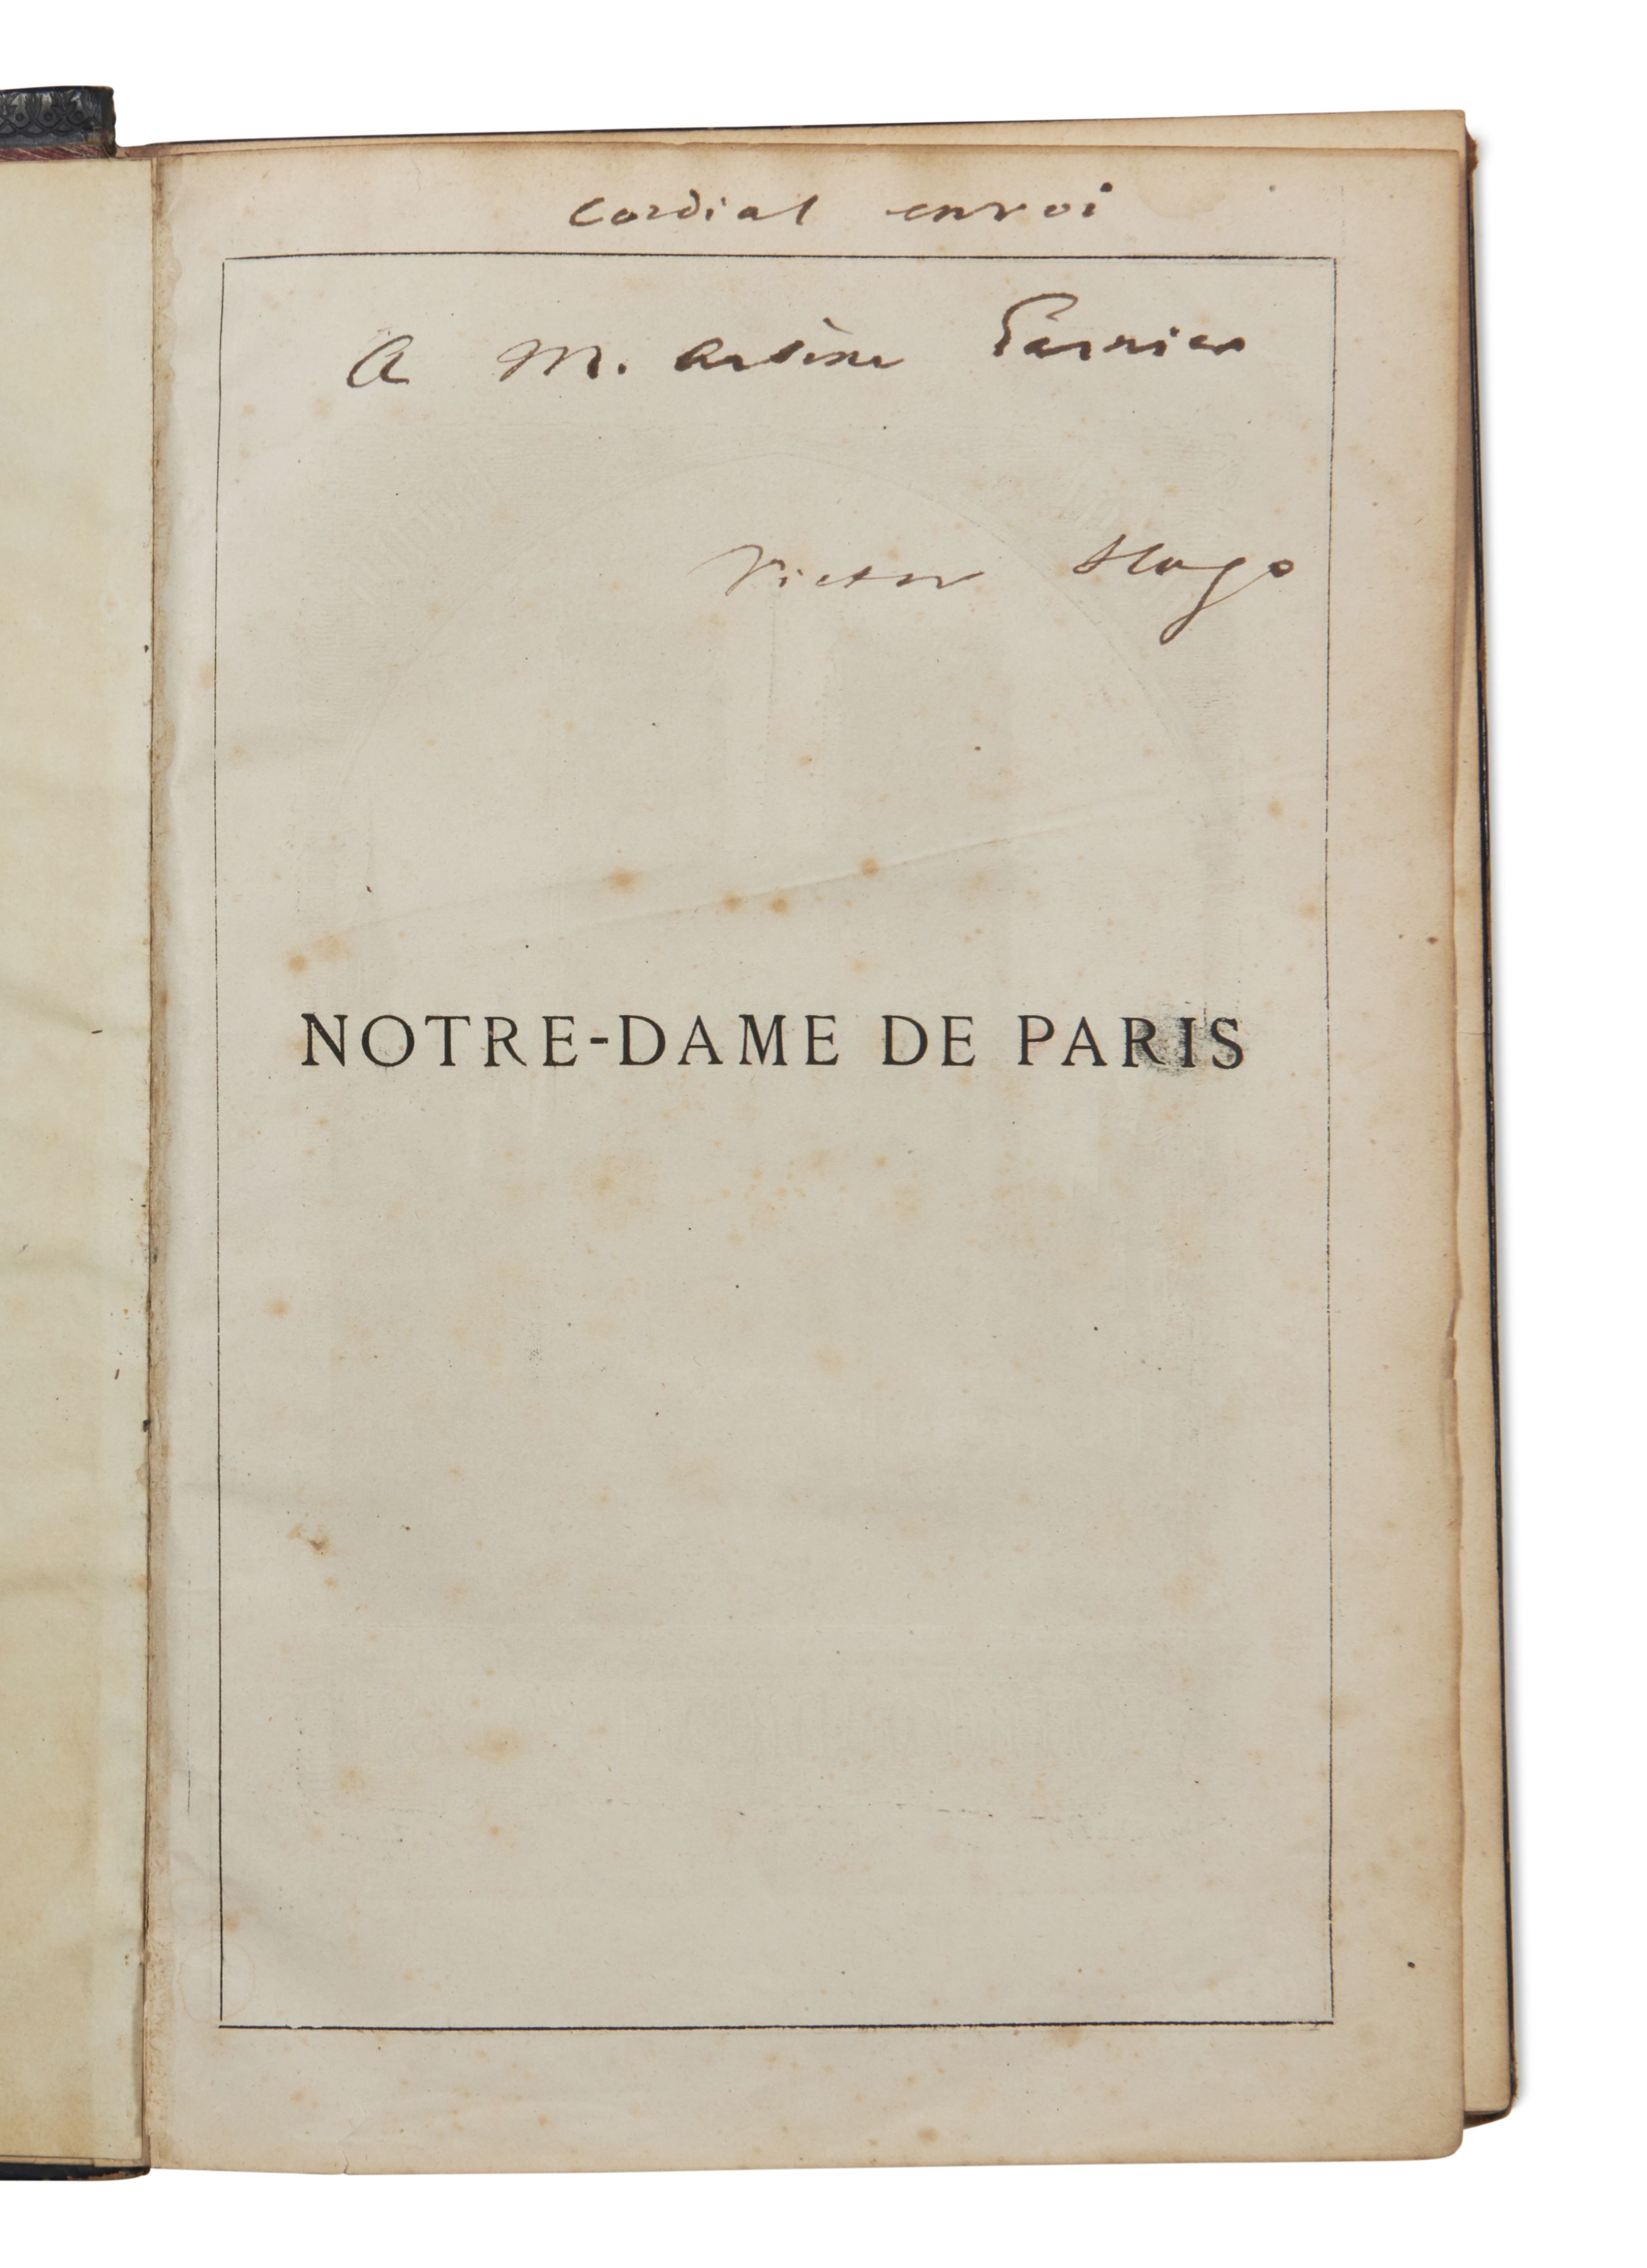 cordial envoi
A M. Arsène Garnier
Victor Hugo
NOTRE-DAME DE PARIS